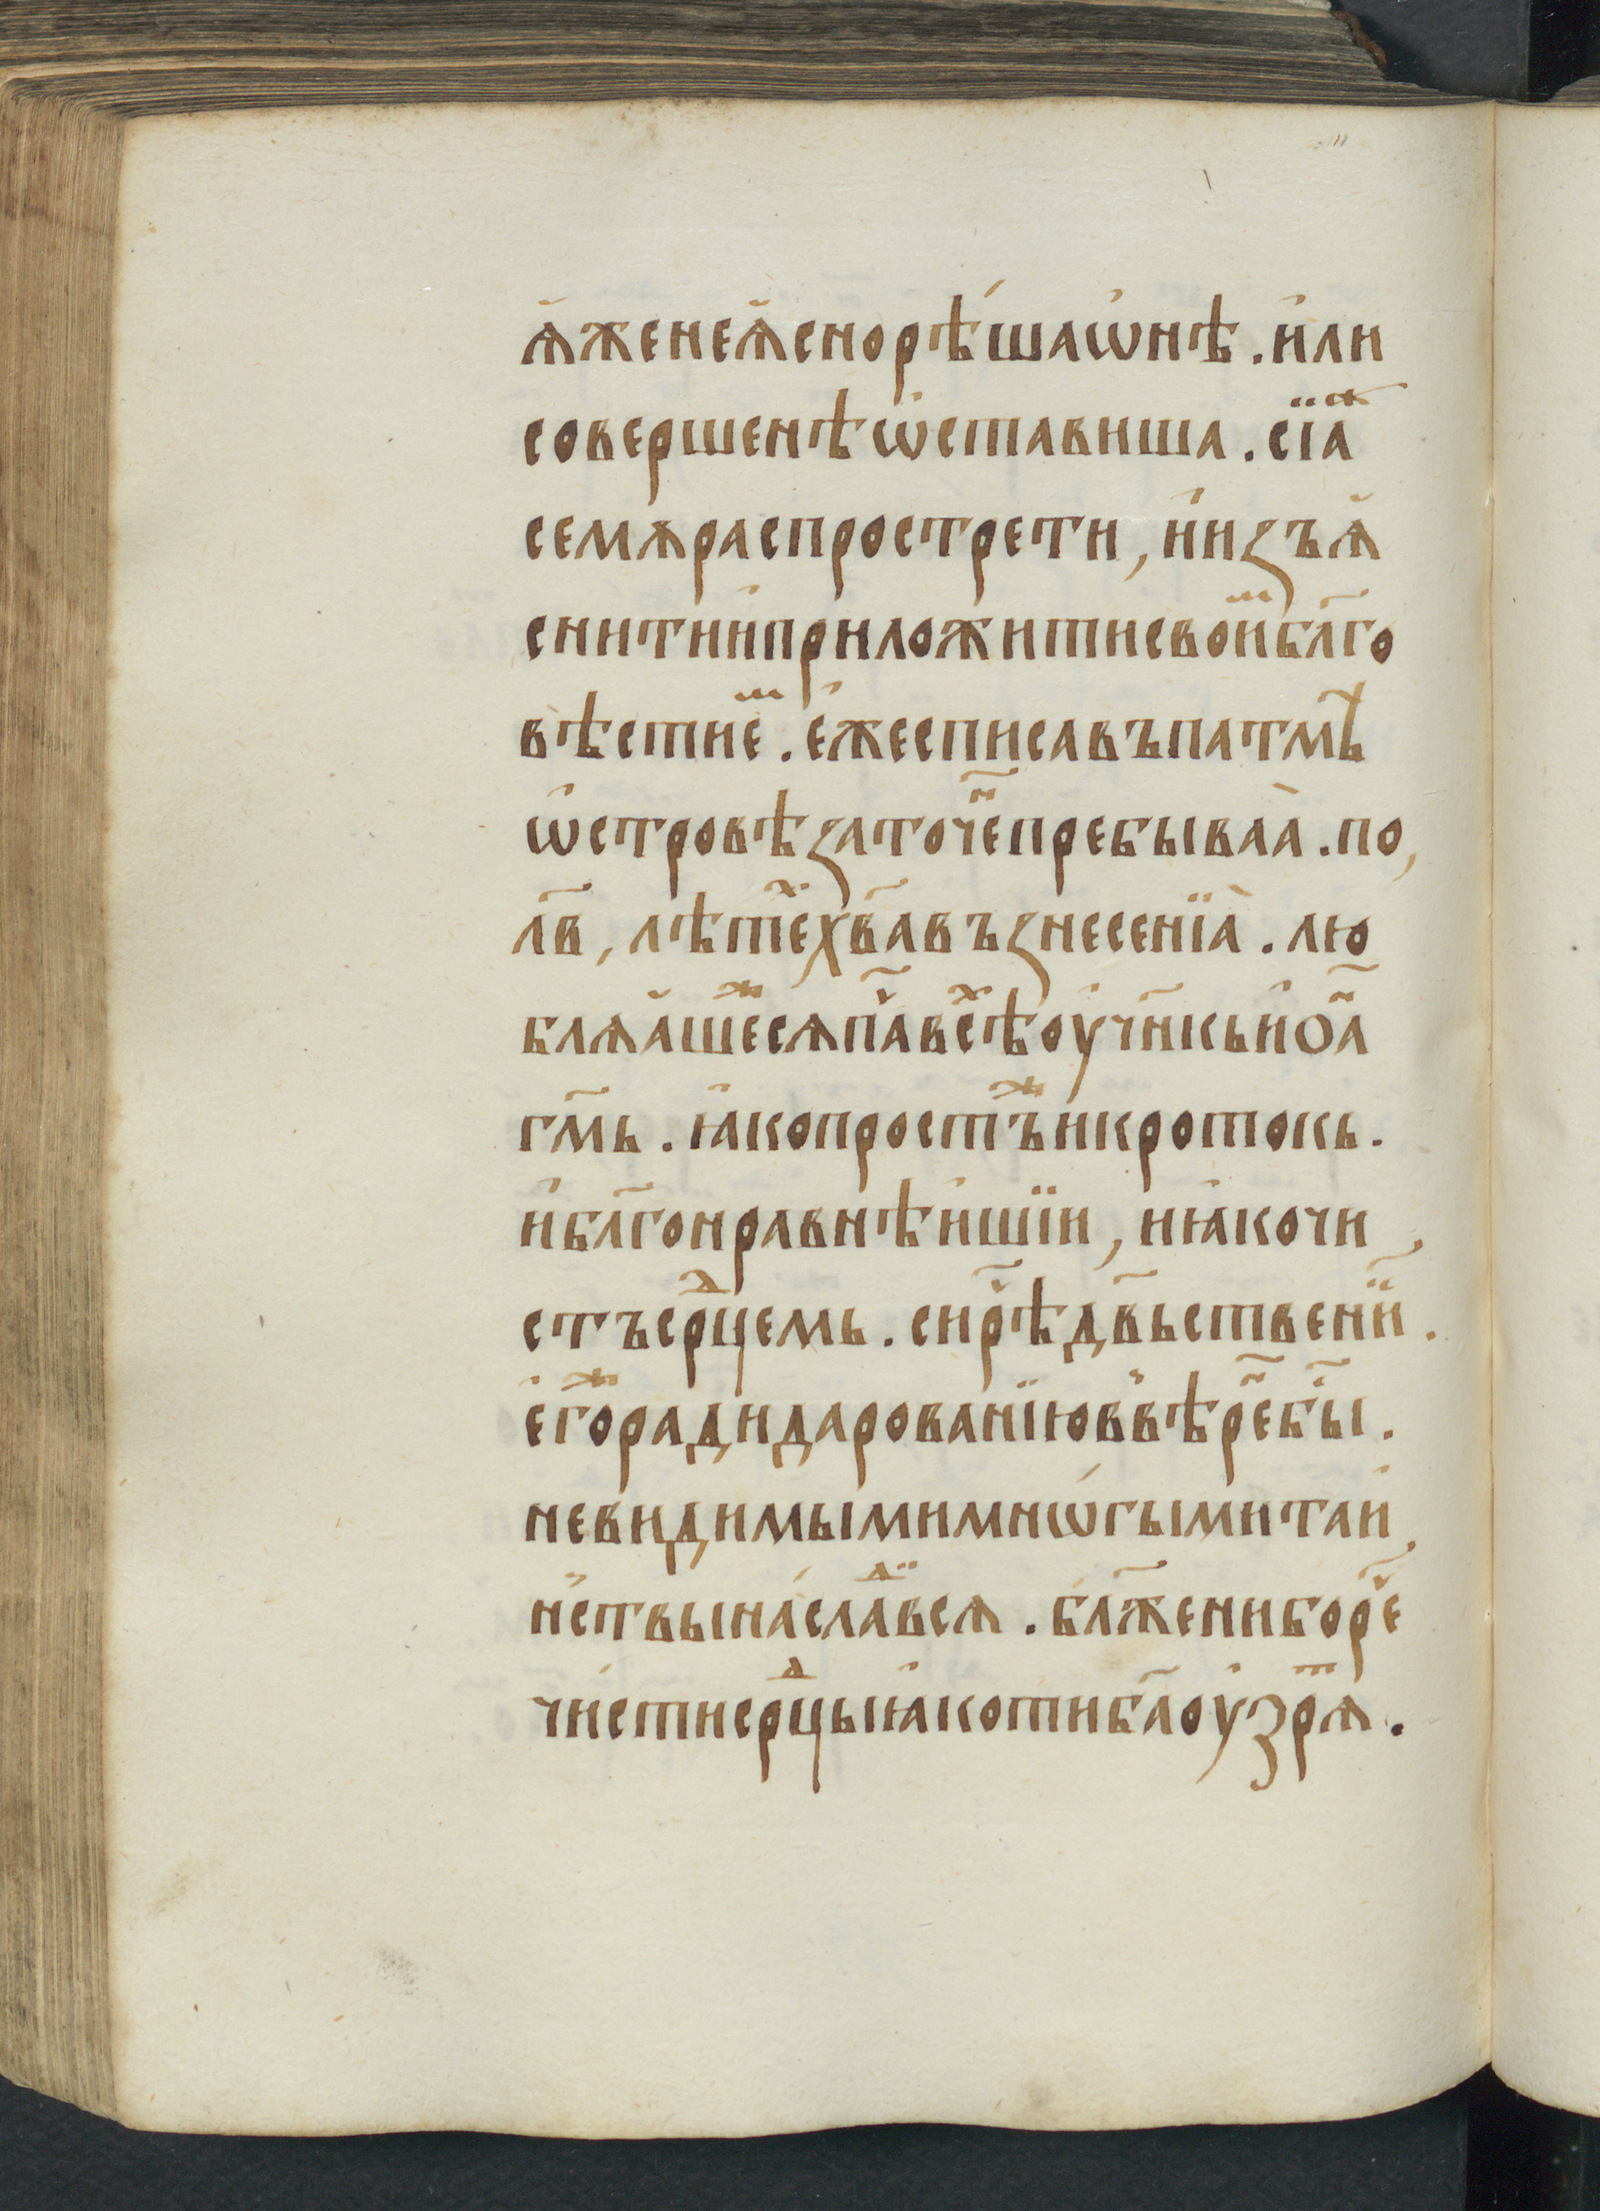 ѧ҆женеѧ҆снорѣ́шаѡ҆нѣ . и҆ли
совершенѣѡ҆ставиша . сїаⷦ҇
семѧраспрострети , и҆изъѧ҆
снитии҆приложитисвоⷨи҆бл҃го
вѣстиеⷨ . е҆жесписавъпатмѣ
ѡ҆стровѣзаточе҃нпребываа̀ . по ,
лв҃ , лѣтеⷯх҃вавъзнесенїа̀ . лю
блѧа҆шеⷤсѧпа҃ⷡвсѣⷯоу҆чн҃кьи҆ѻа҃ⷩ
гм҃ь . ꙗ҆копростъⷤикротокь .
и҆бл҃гонравнѣ́ишїи , иꙗ҆кочи
стъсрⷣцемь . сирⷱ҇ѣдв҃ьствении҃ .
е҆гоⷤрадидарованїювв̾ѣре҃ⷩбы҃ⷭ .
невидимымимнѡ́гымитаи҆
нⷭ҇твына́слаⷣвсѧ . бл҃жениборⷱ҇е
чи́стисрⷣцыꙗ҆котиб҃аоу҆зрѧⷮ .